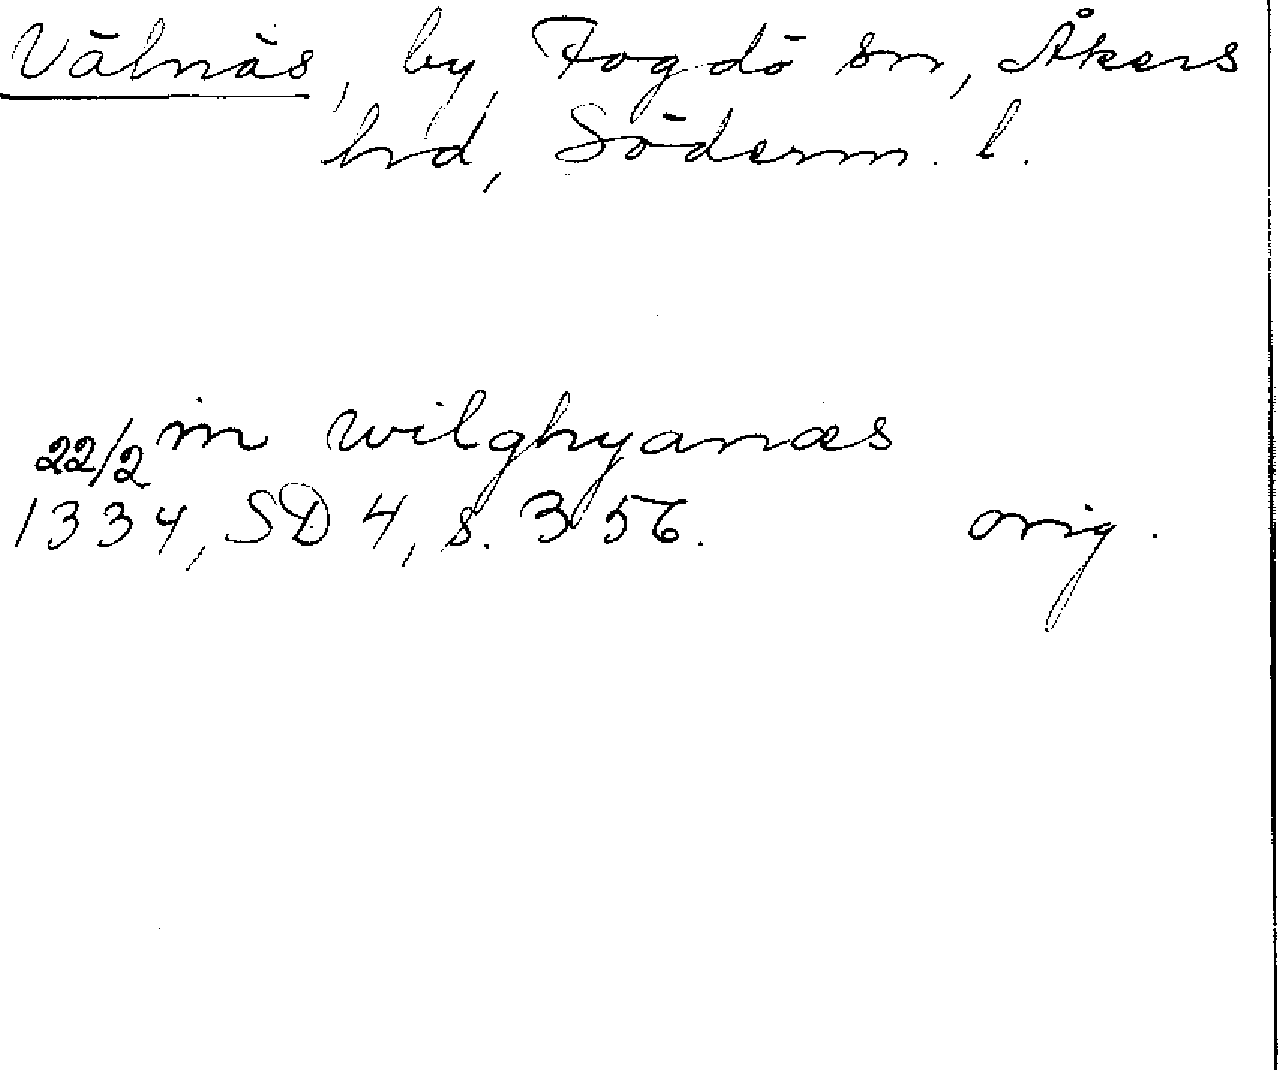 Välnäs, by, Fogdö sn, Åkers
hd, Söderm. l.
22/2 in wilghyanæs
1334, SD 4, s. 356. orig.